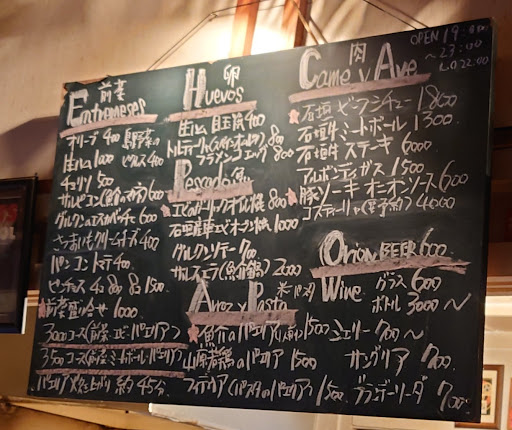 前菜
Entremeses
オリーブ 400 島野菜の
生ハム 1000 ピクルス 400
チョリソ 500
サルピコン(魚介のマリネ) 600
グルクンのエスカベッチェ 600
さつまいもクリームチーズ 400
パン コン トマテ 400
ピンチョス 4コ 800 8コ 1500
前菜盛り合せ 1000
3000コース(前菜・エビ・パエリア)
3500コース(前菜・ミートボール・パエリア)
パエリア炊き上がり 約45分
卵
Huevos
生ハム 目玉焼 400
トルティージャ(スペインオムレツ) 800
フラメンコエッグ 800
Pescado 魚
エビのガーリックオイル焼 800
石垣産車エビオーブン焼 1000
グルクンソテー 700
サルスエラ(魚介鍋) 2000
Arroz y Pasta 米・パスタ
魚介のパエリア(1人前) 1500
山原若鶏のパエリア 1500
フィデウア(パスタのパエリア) 1500
肉
Carne y Ave
石垣 ビーフシチュー 1800
石垣牛ミートボール 1300
石垣牛 ステーキ 6000
アルボンディガス 1500
豚ソーキ オニオンソース 600
コスティージャ(要予約) 4000
Orion BEER 600
Wine グラス 600
ボトル 3000〜
シェリー 700〜
サングリア 700
ブランデーソーダ 700
OPEN 19:00
〜23:00
L.O 22:00